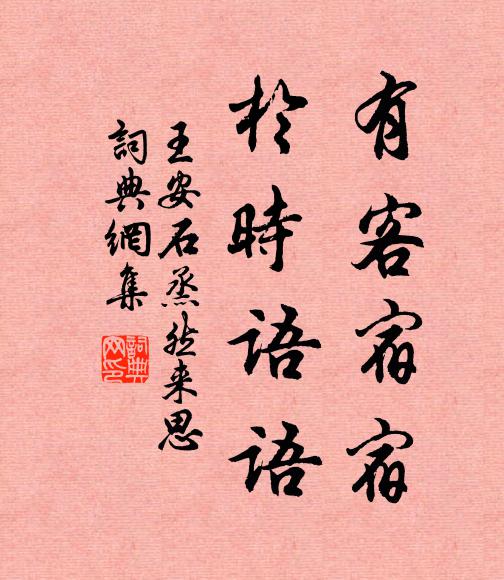 有客宿宿
於時語語
王安石烝然来思
詞典網集
詞典
网印